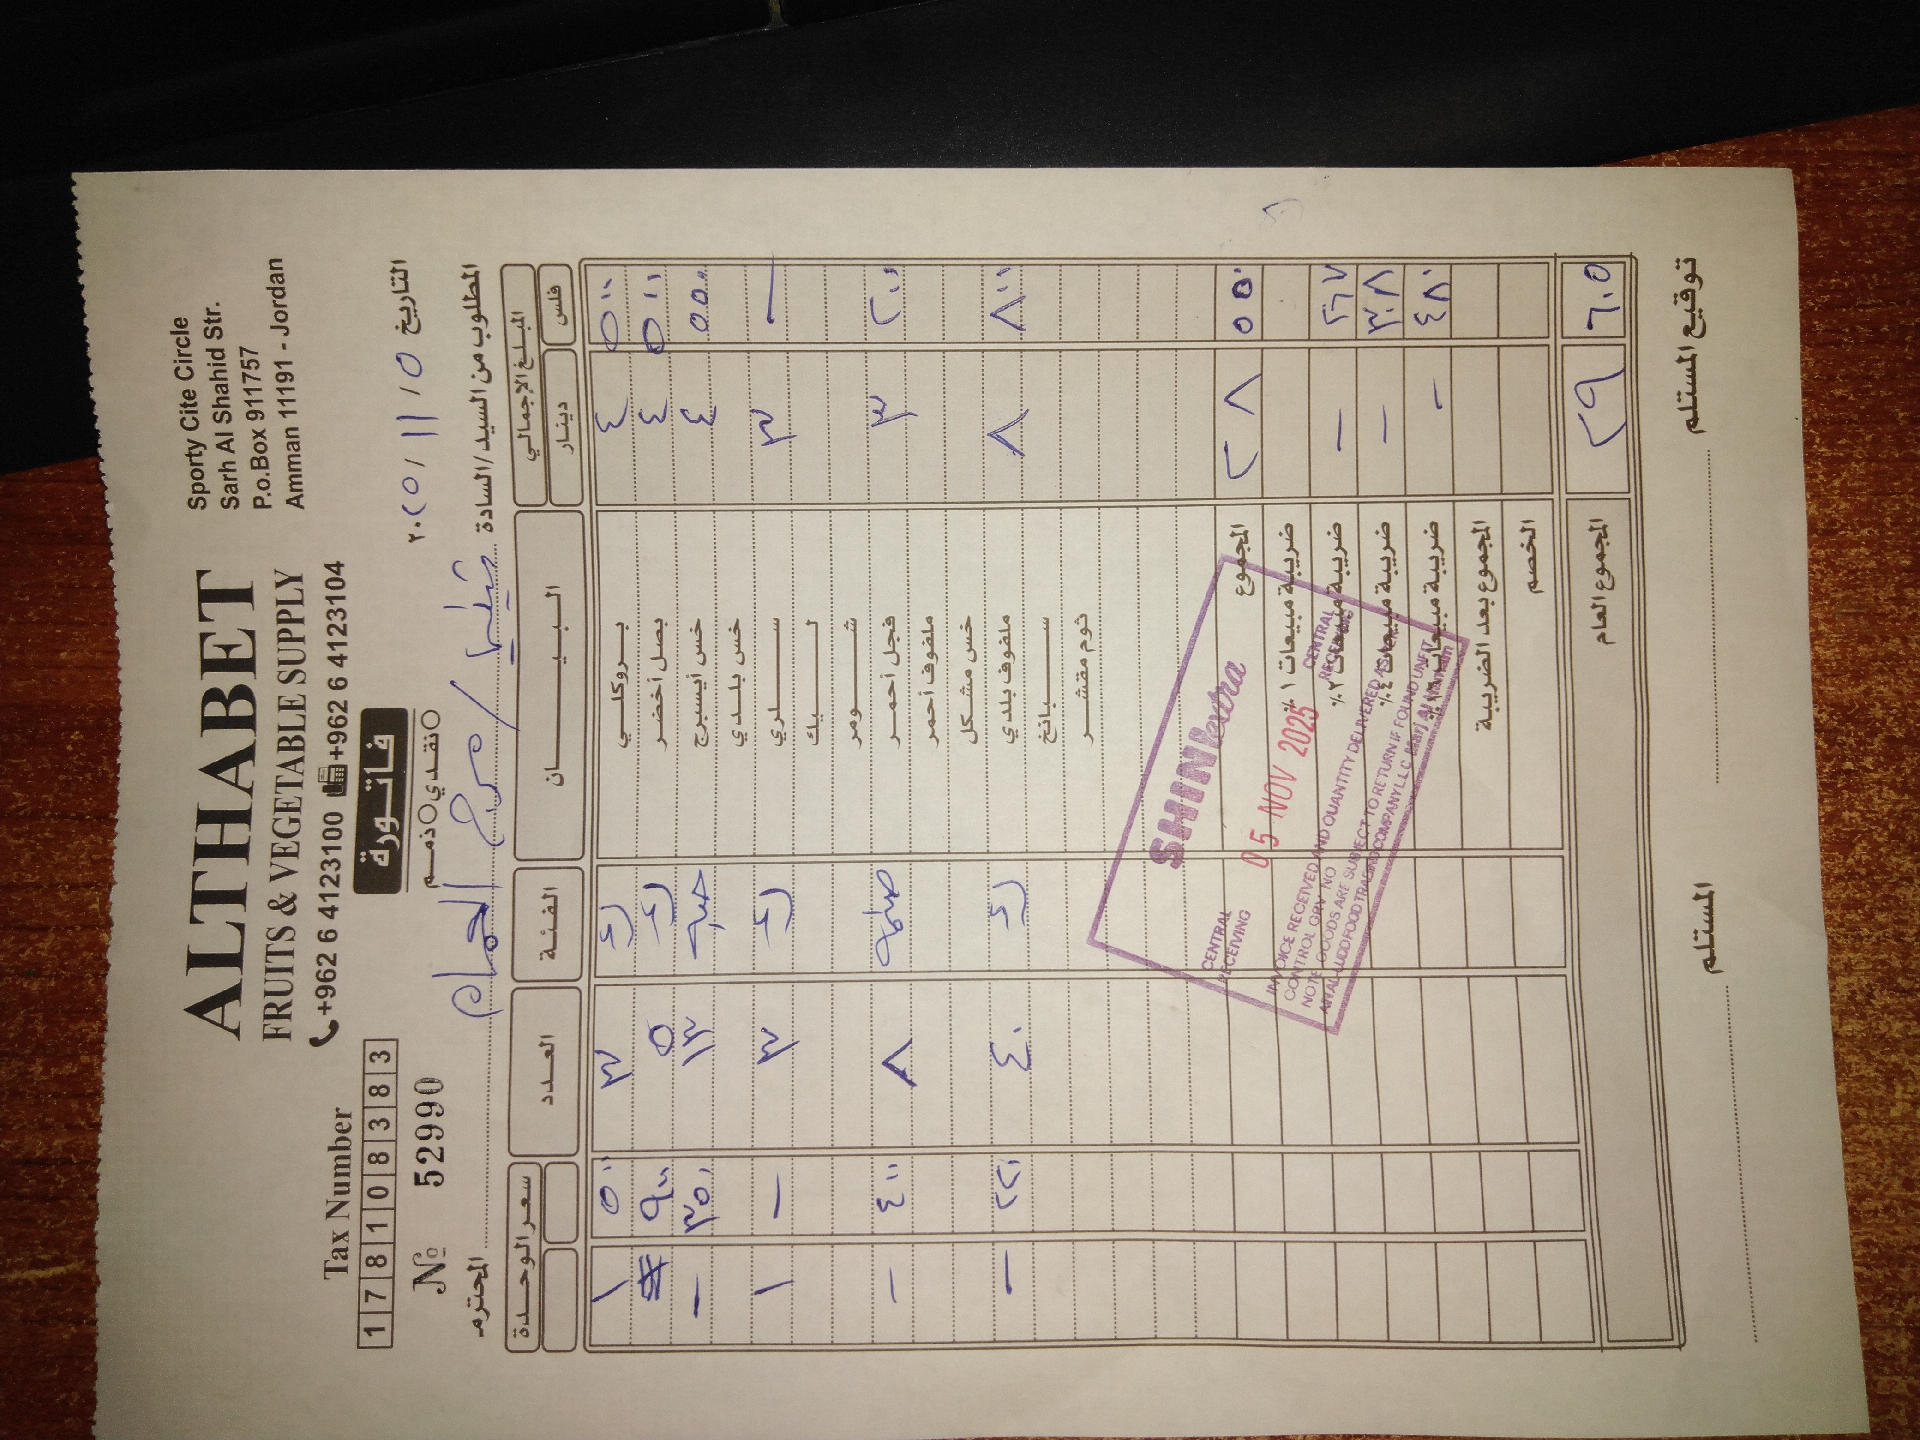 ALTHABET
FRUITS & VEGETABLE SUPPLY
+962 6 4123100 +962 6 4123104
Sporty Cite Circle
Sarh Al Shahid Str.
P.o.Box 911757
Amman 11191 - Jordan
Tax Number
1 7 8 1 0 8 3 8 3
فاتورة
نقدي ذمم
التاريخ ٥ / ١١ / ٢٠٢٥
№ 52990
المطلوب من السيد/السادة / مرج الحمام المحترم
المبلغ الإجمالي البيان الفئة العدد سعر الوحدة
فلس دينار
٥٠٠ ٤ بروكلي ٣ ٥٠٠ ١
٥٠٠ ٤ بصل أخضر ٥ ٩٠٠
٥٥٠ ٤ خس أيسبرج حبة ١٣ ٣٥٠ -
خس بلدي
- ٣ سلري ٣ - ١
ليك
شومر
٢٠٠ ٣ فجل أحمر ٨ ٤٠٠ -
ملفوف أحمر
خس مشكل
٨٠٠ ٨ ملفوف بلدي ٤٠ ٢٢٠ -
سبانخ
ثوم مقشر
٥٥٠ ٢٨ المجموع
ضريبة مبيعات ١٪
- ضريبة مبيعات ٢٪
- ضريبة مبيعات ٤٪
٤٨٠ - ضريبة مبيعات
المجموع بعد الضريبة
الخصم
٦٠٥ ٢٩ المجموع العام
SHINI extra
CENTRAL RECEIVING
05 NOV 2025
CENTRAL RECEIVING
INVOICE RECEIVED AND QUANTITY DELIVERED AS PER
CONTROL GRV NO
NOTE: GOODS ARE SUBJECT TO RETURN IF FOUND UNFIT
توقيع المستلم المستلم